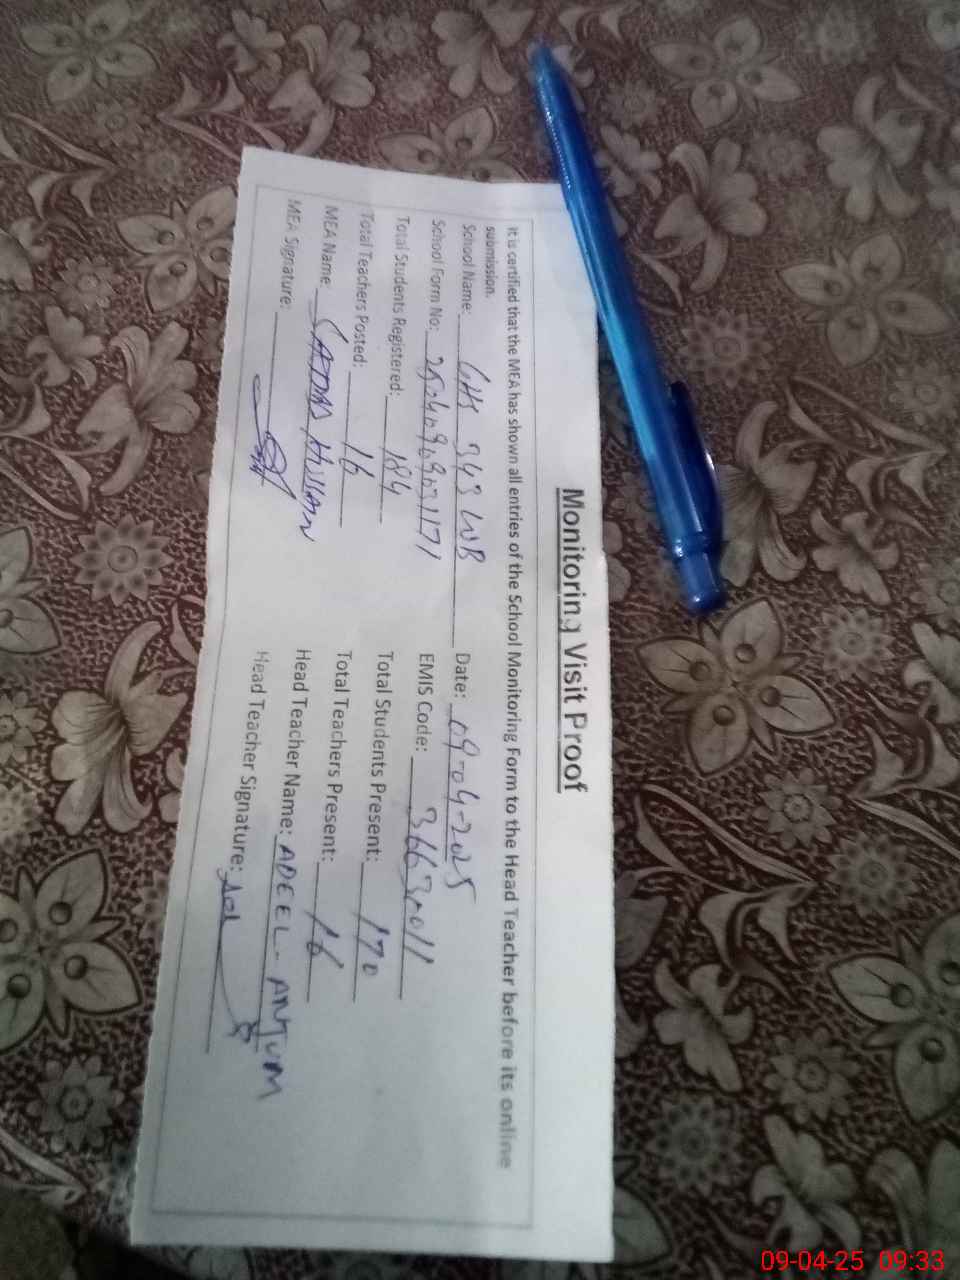 Monitoring Visit Proof
It is certified that the MEA has shown all entries of the School Monitoring Form to the Head Teacher before its online
submission.
School Name: GHS 343 WB Date: 09-04-2025
School Form No: EMIS Code: 36630011
Total Students Registered: 184 Total Students Present: 170
Total Teachers Posted: 16 Total Teachers Present: 16
MEA Name: HUSSAIN Head Teacher Name: ADEEL - ANJUM
MEA Signature: Head Teacher Signature:
09-04-25 09:33